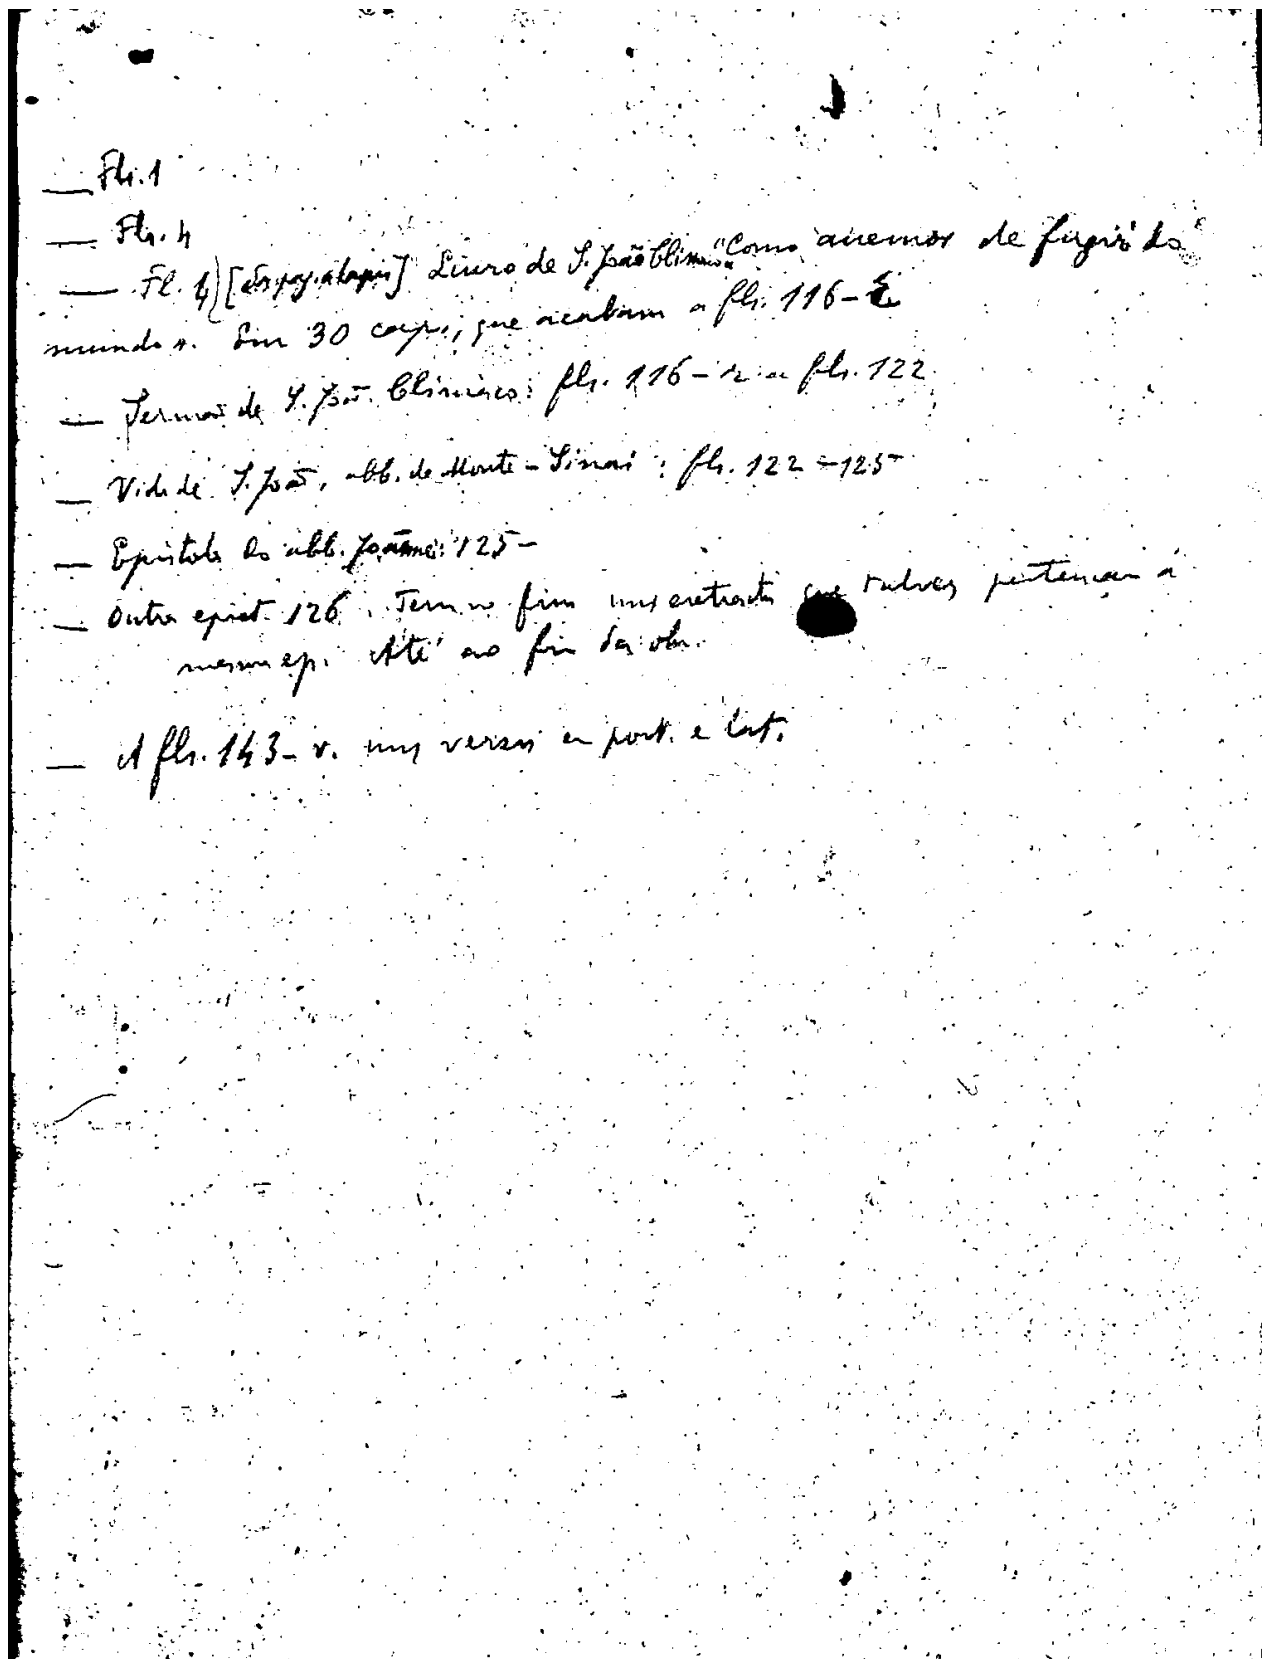 — Fls. 1
— Fls. 4
— Fl. 4) [ ] Livro de S. João Climaco "Como avemos de fugir do
mundo". Em 30 caps., que acabam a fls. 116-
— Sermão de S. João Climaco: fls. 116-r. a fls. 122
— Vida de S. João, abb. de Monte-Sinai: fls. 122-125
— Epistola do abb. Joanne: 125-
— Outra epist. 126. Tem no fim uns extractos que talvez pertençam á
mesma ep. Até ao fim da obr.
— A fls. 143-v. uns versos em port. e lat.